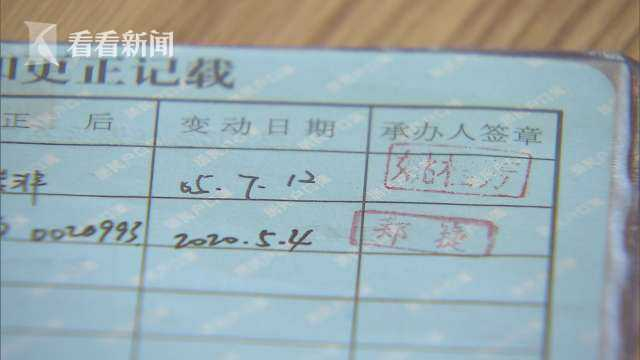 看看新闻
和更正记载
正 后 变动日期 承办人签章
非 05.7.12
0020993 2020.5.4 郑